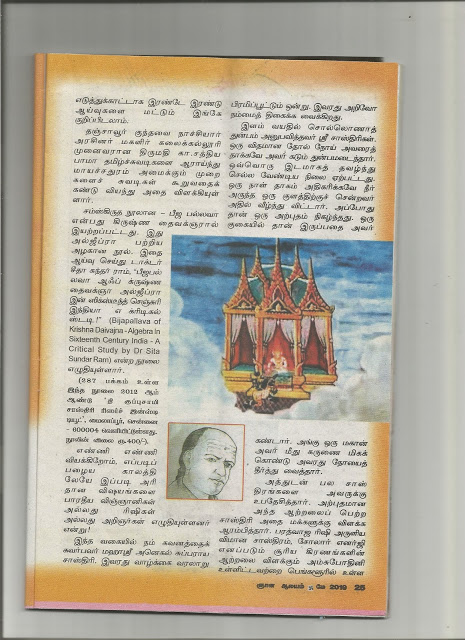 எடுத்துக்காட்டாக இரண்டே இரண்டு
ஆய்வுகளை மட்டும் இங்கே
குறிப்பிடலாம்.
தஞ்சாவூர் குந்தவை நாச்சியார்
அரசினர் மகளிர் கலைக்கல்லூரி
முனைவரான திருமதி கா.சத்திய
பாமா தமிழ்ச்சுவடிகளை ஆராய்ந்து
மாயச்சதுரம் அமைக்கும் முறை
களைச் சுவடிகள் கூறுவதைக்
கண்டு வியந்து அதை விளக்கியுள்
ளார்.
சம்ஸ்கிருத நூலான - பீஜ பல்லவா
என்பது கிருஷ்ண தைவக்ஞரால்
இயற்றப்பட்டது. இது
அல்ஜீப்ரா பற்றிய
அழகான நூல். இதை
ஆய்வு செய்து டாக்டர்
சீதா சுந்தர் ராம், "பீஜபல்
லவா ஆஃப் க்ருஷ்ண
தைவக்ஞா அல்ஜீப்ரா
இன் ஸிக்ஸ்டீந்த் செஞ்சுரி
இந்தியா எ கரிடிகல்
ஸ்டடி!" (Bijapallava of
Krishna Daivajna - Algebra In
Sixteenth Century India - A
Critical Study by Dr Sita
Sundar Ram) என்ற நூலை
எழுதியுள்ளார்.
(287 பக்கம் உள்ள
இந்த நூலை 2012 ஆம்
ஆண்டு 'தி குப்புசாமி
சாஸ்திரி ரிஸர்ச் இன்ஸ்டி
டியூட்', மைலாப்பூர், சென்னை
- 600004 வெளியிட்டுள்ளது.
நூலின் விலை ரூ.400/-).
எண்ணி எண்ணி
வியக்கிறோம். எப்படிப்
பழைய காலத்தி
லேயே இப்படி அரி
தான விஷயங்களை
பாரதிய விஞ்ஞானிகள்
அல்லது ரிஷிகள்
அல்லது அறிஞர்கள் எழுதியுள்ளனர்
என்று!
இந்த வகையில் நம் கவனத்தைக்
கவர்பவர் மஹாஸ்ரீ அனெகல் சுப்பராய
சாஸ்திரி. இவரது வாழ்க்கை வரலாறு
பிரமிப்பூட்டும் ஒன்று. இவரது அறிவோ
நம்மைத் திகைக்க வைக்கிறது.
இளம் வயதில் சொல்லொணாத்
துன்பம் அனுபவித்தவர் ஸ்ரீ சாஸ்திரிகள்.
ஒரு விதமான தோல் நோய் அவரைத்
தாக்கவே அவர் கடும் துன்பமடைந்தார்.
ஒவ்வொரு இடமாகத் தவழ்ந்து
செல்ல வேண்டிய நிலை ஏற்பட்டது.
ஒரு நாள் தாகம் அதிகரிக்கவே நீர்
அருந்த ஒரு குளத்திற்குச் சென்றவர்
அதில் வீழ்ந்து விட்டார். அப்போது
தான் ஒரு அற்புதம் நிகழ்ந்தது. ஒரு
குகையில் தான் இருப்பதை அவர்
கண்டார். அங்கு ஒரு மகான்
அவர் மீது கருணை மிகக்
கொண்டு அவரது நோயைத்
தீர்த்து வைத்தார்.
அத்துடன் பல சாஸ்
திரங்களை அவருக்கு
உபதேசித்தார். அற்புதமான
அந்த ஆற்றலைப் பெற்ற
சாஸ்திரி அதை மக்களுக்கு விளக்க
ஆரம்பித்தார். பரத்வாஜ ரிஷி அருளிய
விமான சாஸ்திரம், சோலார் எனர்ஜி
எனப்படும் சூரிய கிரணங்களின்
ஆற்றலை விளக்கும் அம்சுபோதினி
உள்ளிட்டவற்றை பெங்களூரில் உள்ள
ஞான ஆலயம் மே 2019 25